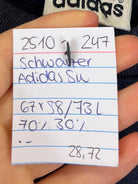 adidas
2510 247
Schwarzer
Adidas Sw
67x58/73L
70% 30%
--
28,72